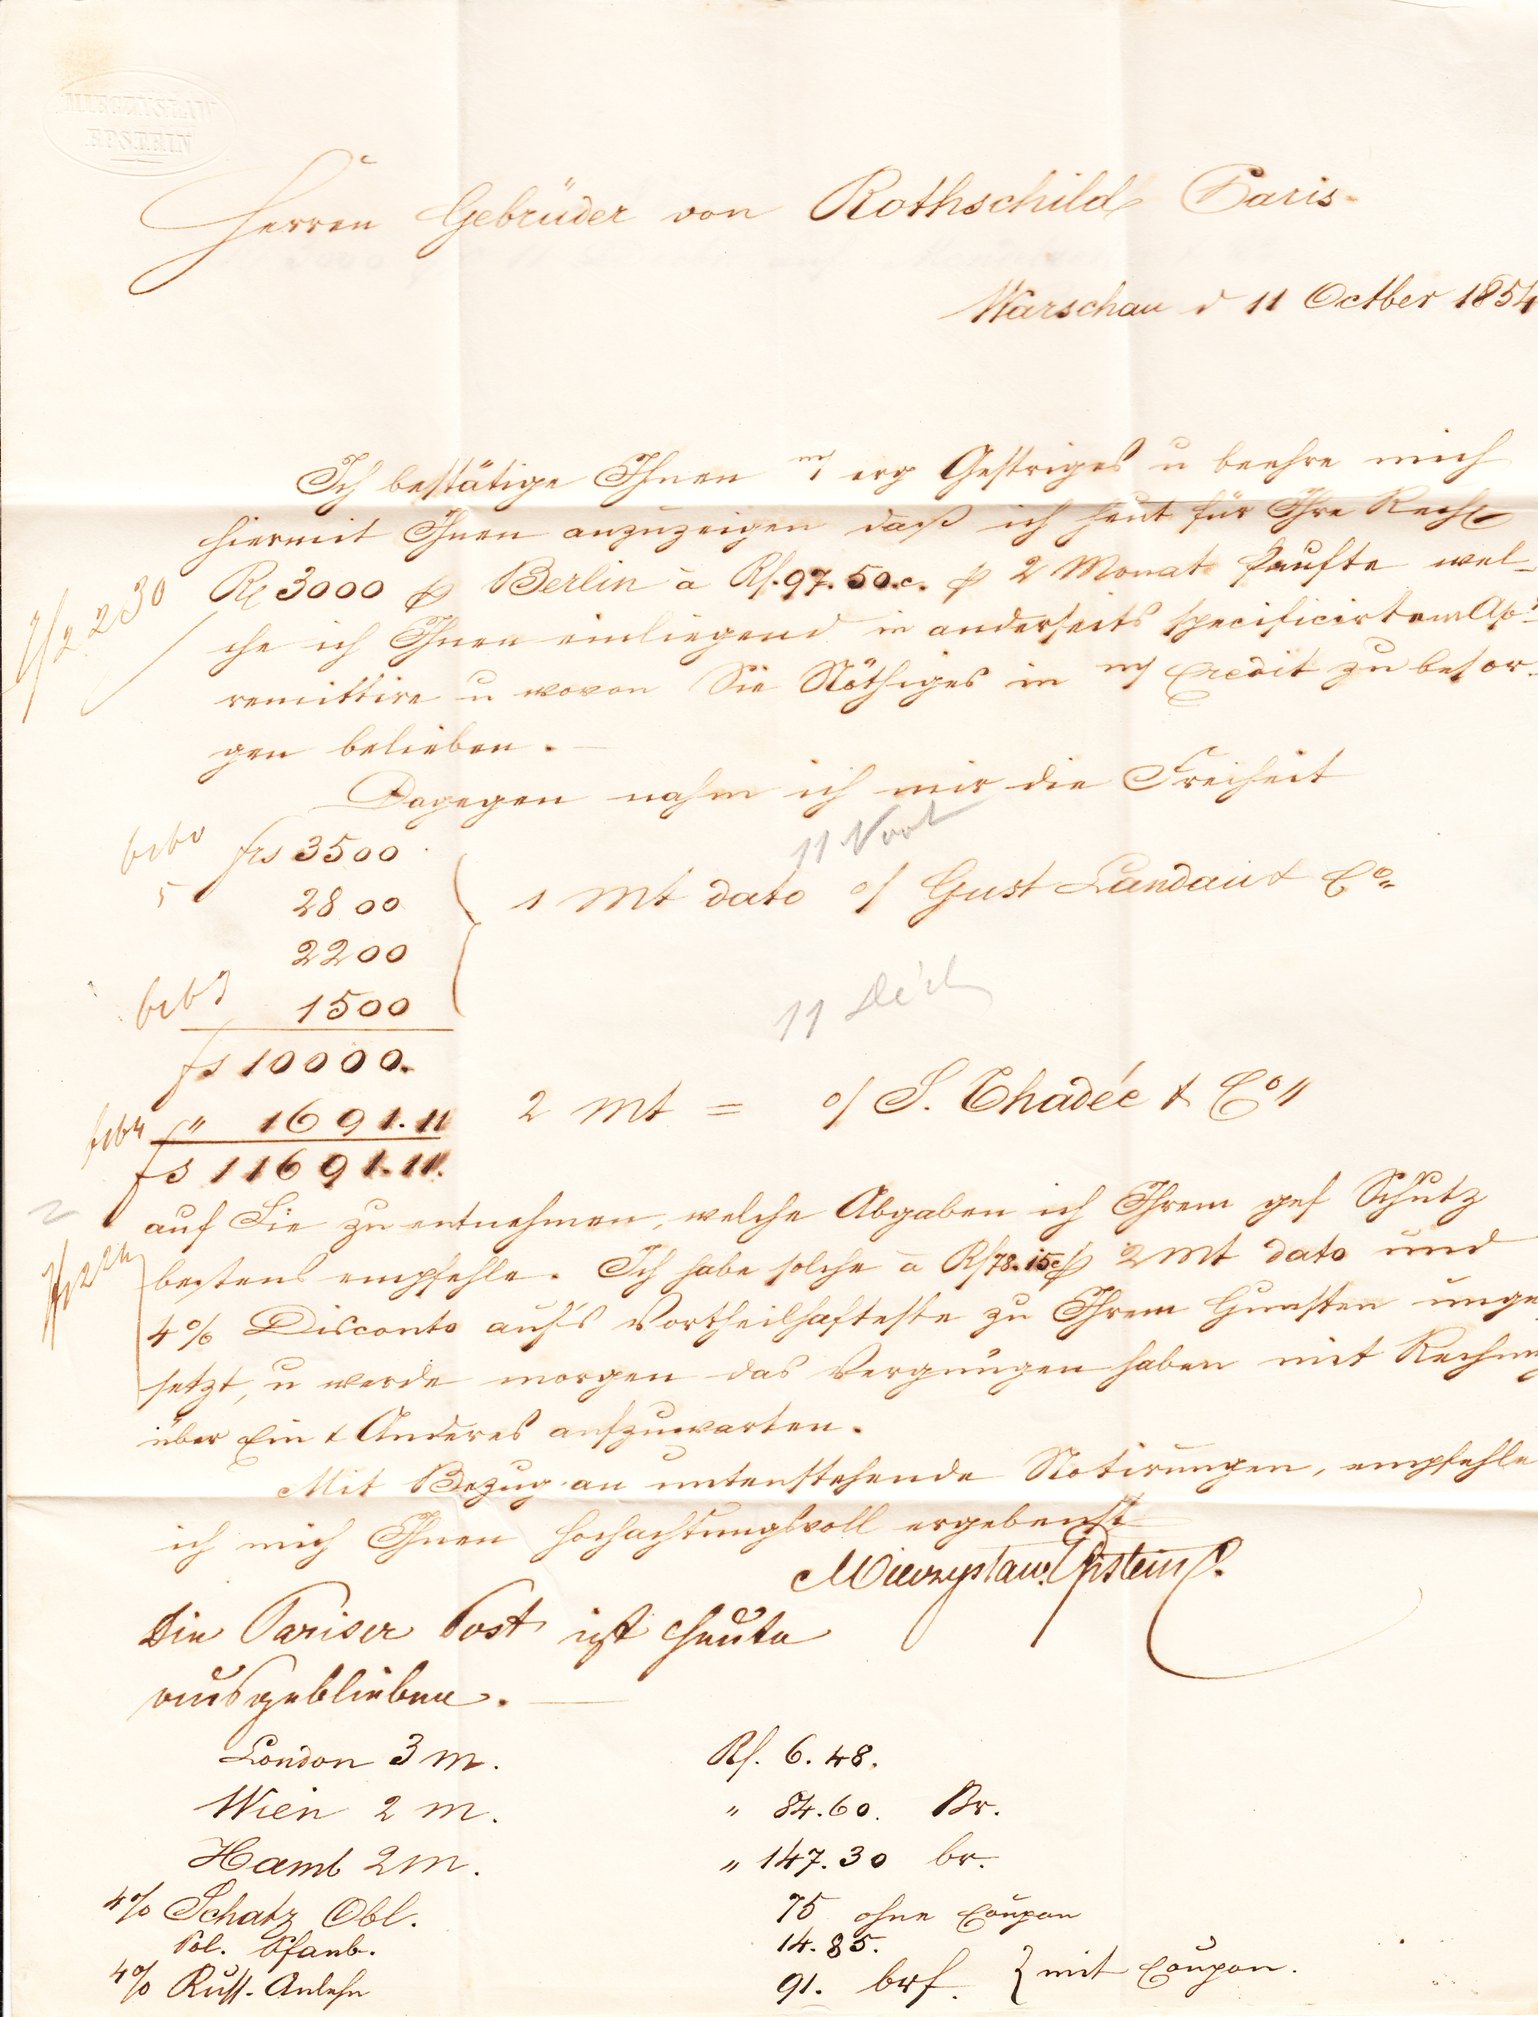 MIECZYSŁAW
EPSTEIN
Herren Gebrüder von Rothschild Paris.
Warschau d 11 Octber 1854
Ich bestätige Ihnen m/ erg Gestriges u beehre mich
hiermit Ihnen anzuzeigen daß ich heut für Ihre Rech
3000 p Berlin à Rs. 97.50.c. p 2 Monat kaufte wel-
che ich Ihnen einliegend in anderseits specificirtem
remittire u wovon Sie Nöthiges in m/ Credit zu besor-
gen belieben.
Dagegen nahm ich mir die Freiheit
frs 3500
2800
2200
1500
1 Mt dato o/ Gust Landau & Co
11 Nov
fs 10000.
11 Déc
" 1691.11
2 Mt = o/ S. Thadée & Co
fs 11691.11.
auf Sie zu entnehmen, welche Abgaben ich Ihrem gef Schutz
bestens empfehle. Ich habe solche à Rs 78.15c p 2 Mt dato und
4% Disconto auf's Vortheilhafteste zu Ihrem Gunsten umge
setzt, u werde morgen das Vergnügen haben mit Rechnung
über Ein & Anderes aufzuwarten.
Mit Bezug an untenstehende Notirungen, empfehle
ich mich Ihnen hochachtungsvoll ergebenst
Mieczyslaw Epstein
Die Pariser Post ist heute
ausgeblieben.
London 3 m. Rs. 6.48.
Wien 2 m. " 84.60. Br.
Hamb 2 m. " 147.30 br.
4% Schatz Obl. 75 ohne Coupon
Pol. Pfanb. 14.85.
4% Russ. Anlehn 91. brf. } mit Coupon.